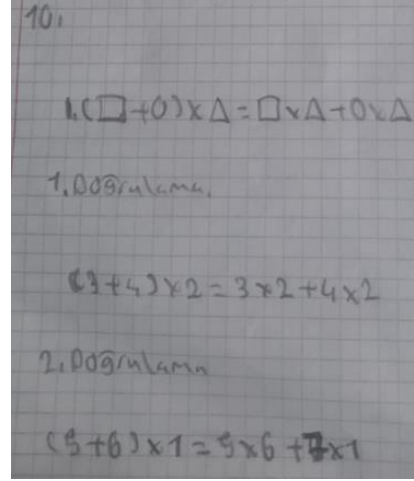 10.
1. (□+O)×△=□×△+O×△
1. Doğrulama.
(3+4)×2=3×2+4×2
2. Doğrulama
(5+6)×1=5×6+7×1